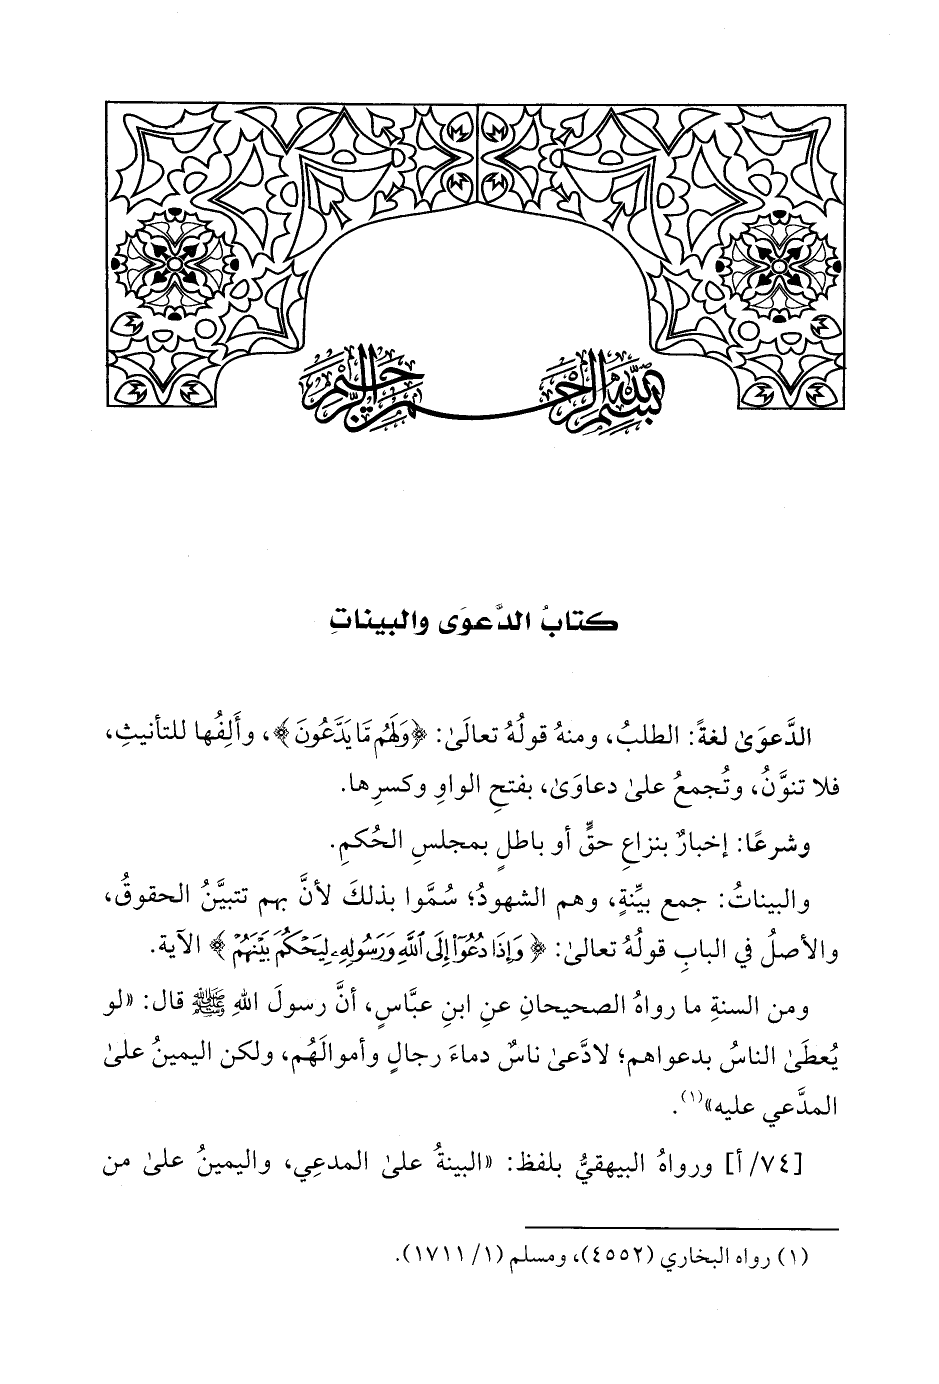 بسم الله الرحمن الرحيم
كتابُ الدَّعوَى والبيناتِ
الدَّعوَىٰ لغةً: الطلبُ، ومنهُ قولُهُ تعالَىٰ: ﴿وَلَهُم مَّا يَدَّعُونَ﴾، وأَلِفُها للتأنيثِ،
فلا تنوَّنُ، وتُجمعُ علىٰ دعاوَىٰ، بفتحِ الواوِ وكسرِها.
وشرعًا: إخبارٌ بنزاعِ حقٍّ أو باطلٍ بمجلسِ الحُكمِ.
والبيناتُ: جمع بيِّنةٍ، وهم الشهودُ؛ سُمَّوا بذلكَ لأنَّ بهم تتبيَّنُ الحقوقُ،
والأصلُ في البابِ قولُهُ تعالىٰ: ﴿وَإِذَا دُعُوٓا۟ إِلَى ٱللَّهِ وَرَسُولِهِۦ لِيَحْكُمَ بَيْنَهُمْ﴾ الآية.
ومن السنةِ ما رواهُ الصحيحانِ عنِ ابنِ عبَّاسٍ، أنَّ رسولَ اللهِ ﷺ قال: «لو
يُعطَىٰ الناسُ بدعواهم؛ لادَّعىٰ ناسٌ دماءَ رجالٍ وأموالَهُم، ولكن اليمينُ علىٰ
المدَّعي عليه»(١).
[٧٤/ أ] ورواهُ البيهقيُّ بلفظ: «البينةُ علىٰ المدعِي، واليمينُ علىٰ من
(١) رواه البخاري (٤٥٥٢)، ومسلم (١/ ١٧١١).